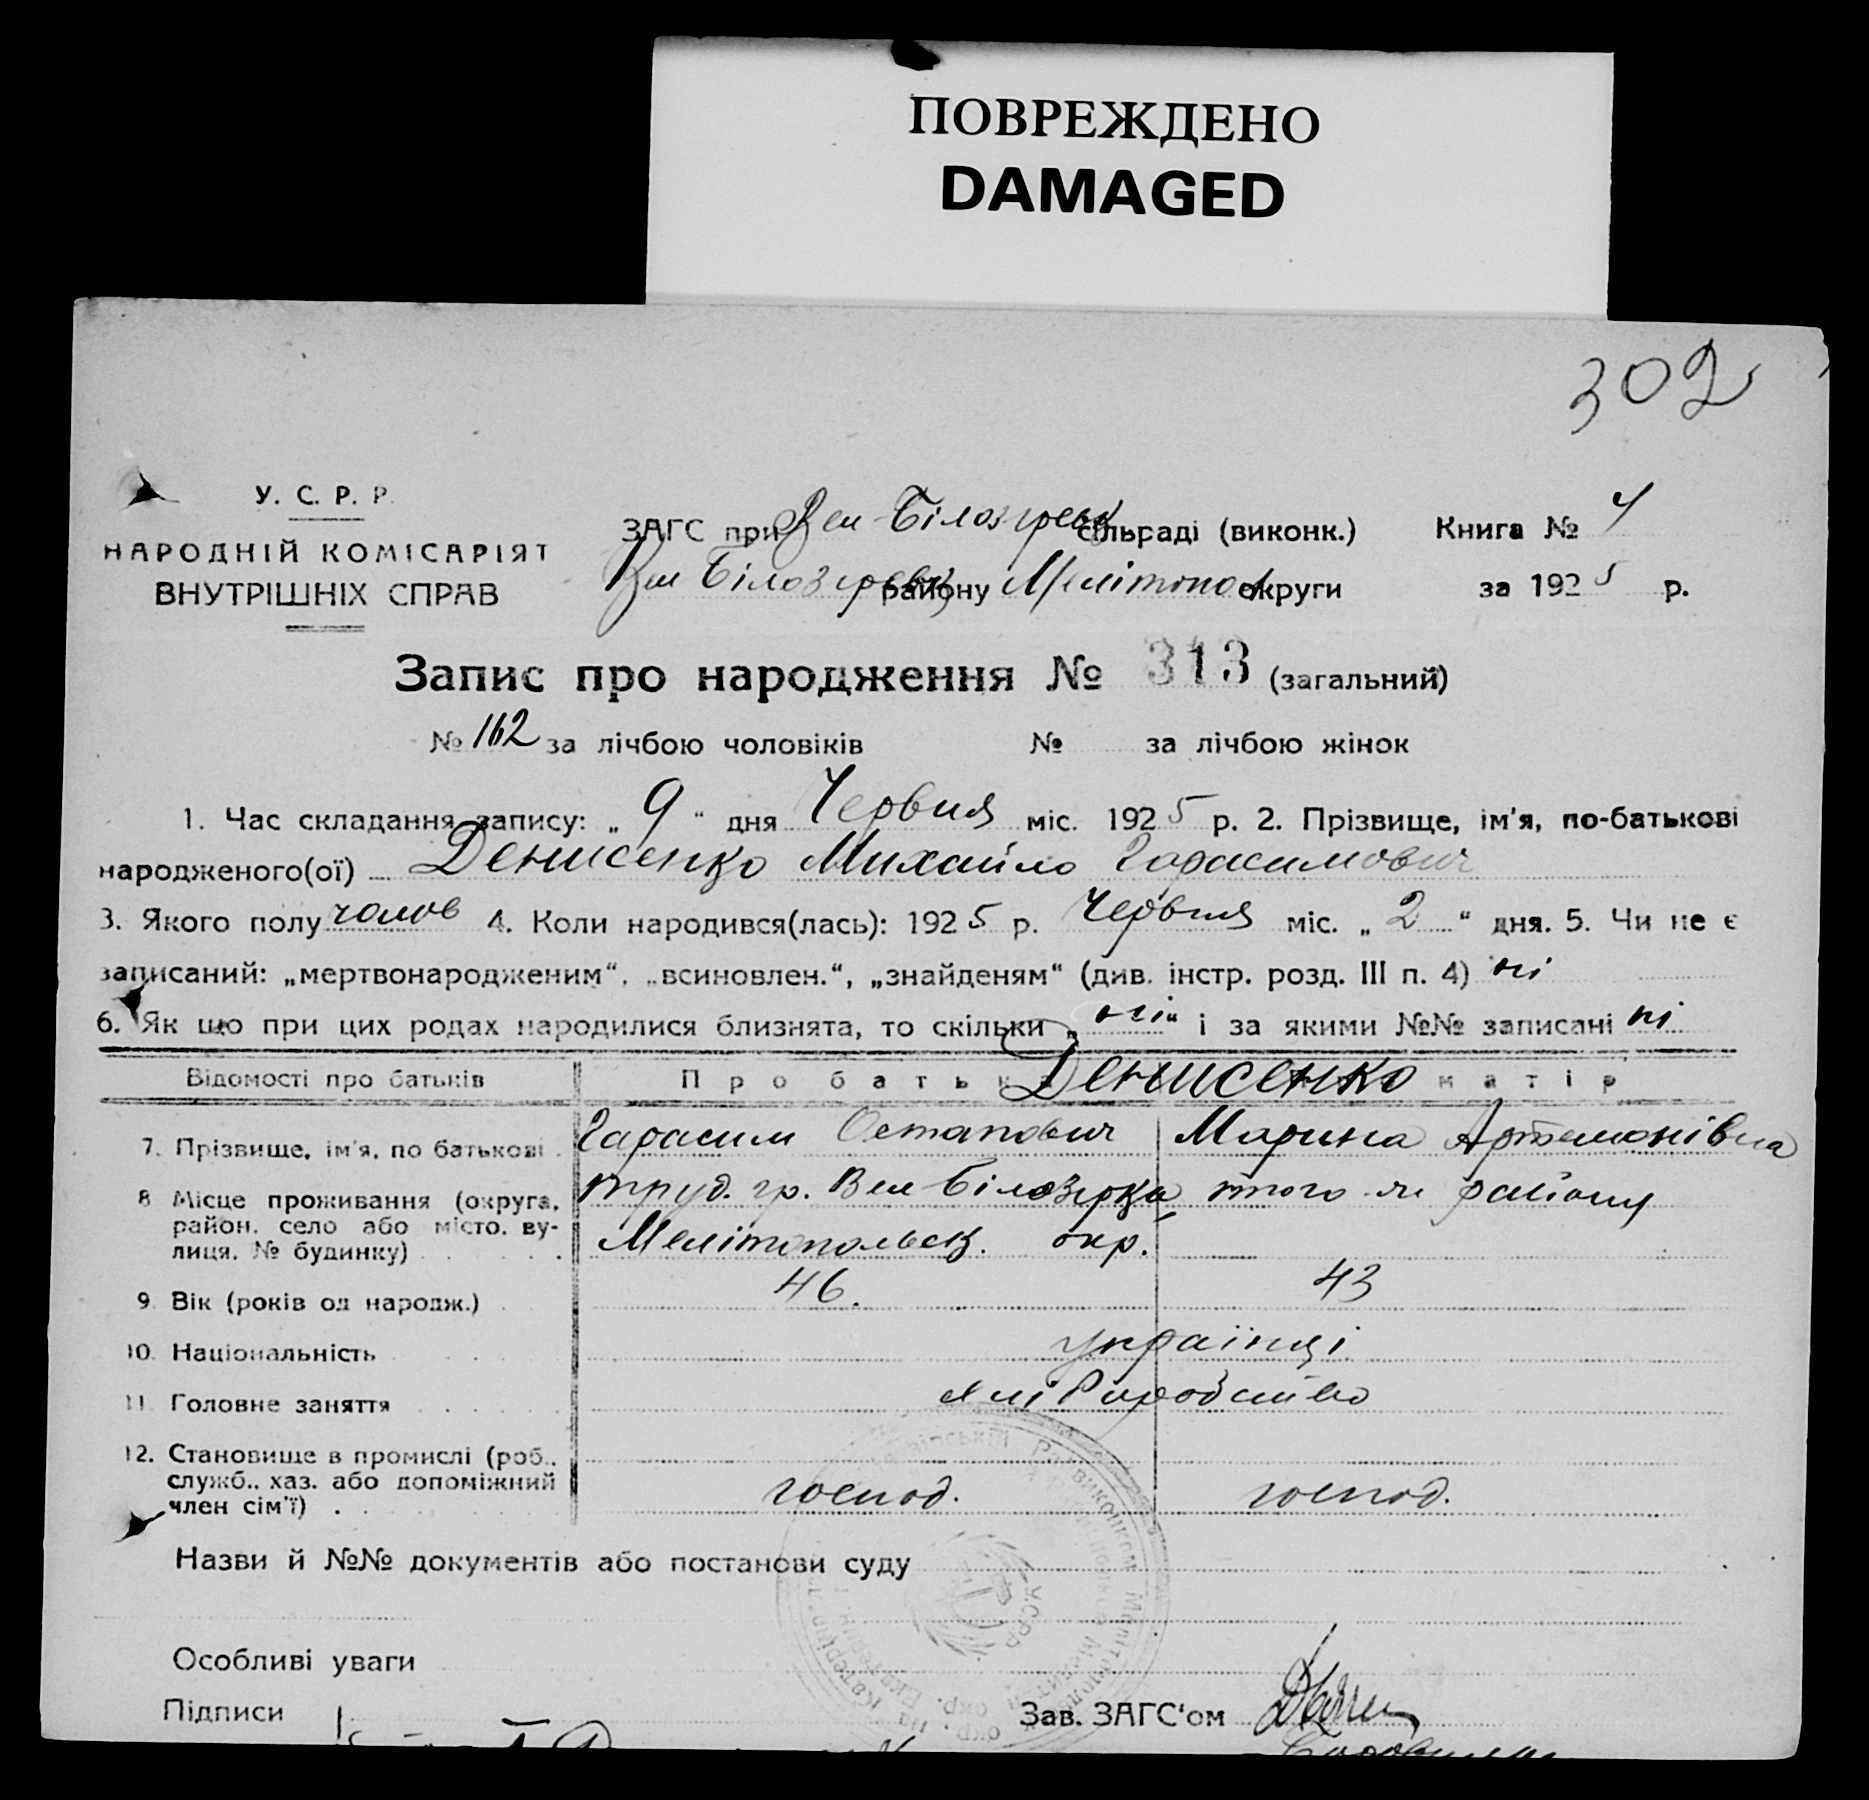 ПОВРЕЖДЕНО
DAMAGED
302
У. С. Р. Р.
НАРОДНІЙ КОМІСАРІЯТ
ВНУТРІШНІХ СПРАВ
ЗАГС при Вел-Білозерськ сільраді (виконк.) Книга № 4
Вел Білозерськ району Мелітопол округи за 1925 р.
Запис про народження № 313 (загальний)
№ 162 за лічбою чоловіків № за лічбою жінок
1. Час складання запису: „ 9 “ дня Червня міс. 1925 р. 2. Прізвище, ім'я, по-батькові
народженого(ої) Денисенко Михайло Гарасимович
3. Якого полу чолов 4. Коли народився(лась): 1925 р. Червня міс. „ 2 “ дня. 5. Чи не є
записаний: „мертвонародженим“, „всиновлен.“, „знайденям“ (див. інстр. розд. III п. 4) ні
6. Як що при цих родах народилися близнята, то скільки „ ні “ і за якими №№ записані ні
Відомості про батьків Про батька Денисенко матір
7. Прізвище, ім'я, по батькові Гарасим Остапович Марина Артемонівна
8 Місце проживання (округа, район, село або місто, вулиця, № будинку) труд. гр. Вел Білозерка того-ж району
Мелітопольськ. окр.
9. Вік (років од народж.) 46. 43
10. Національність українці
11. Головне заняття хліборобство
12. Становище в промислі (роб., служб., хаз. або допоміжний член сім'ї) господ. господ.
Назви й №№ документів або постанови суду
У.С.Р.Р.
Особливі уваги
Підписи Зав. ЗАГС'ом